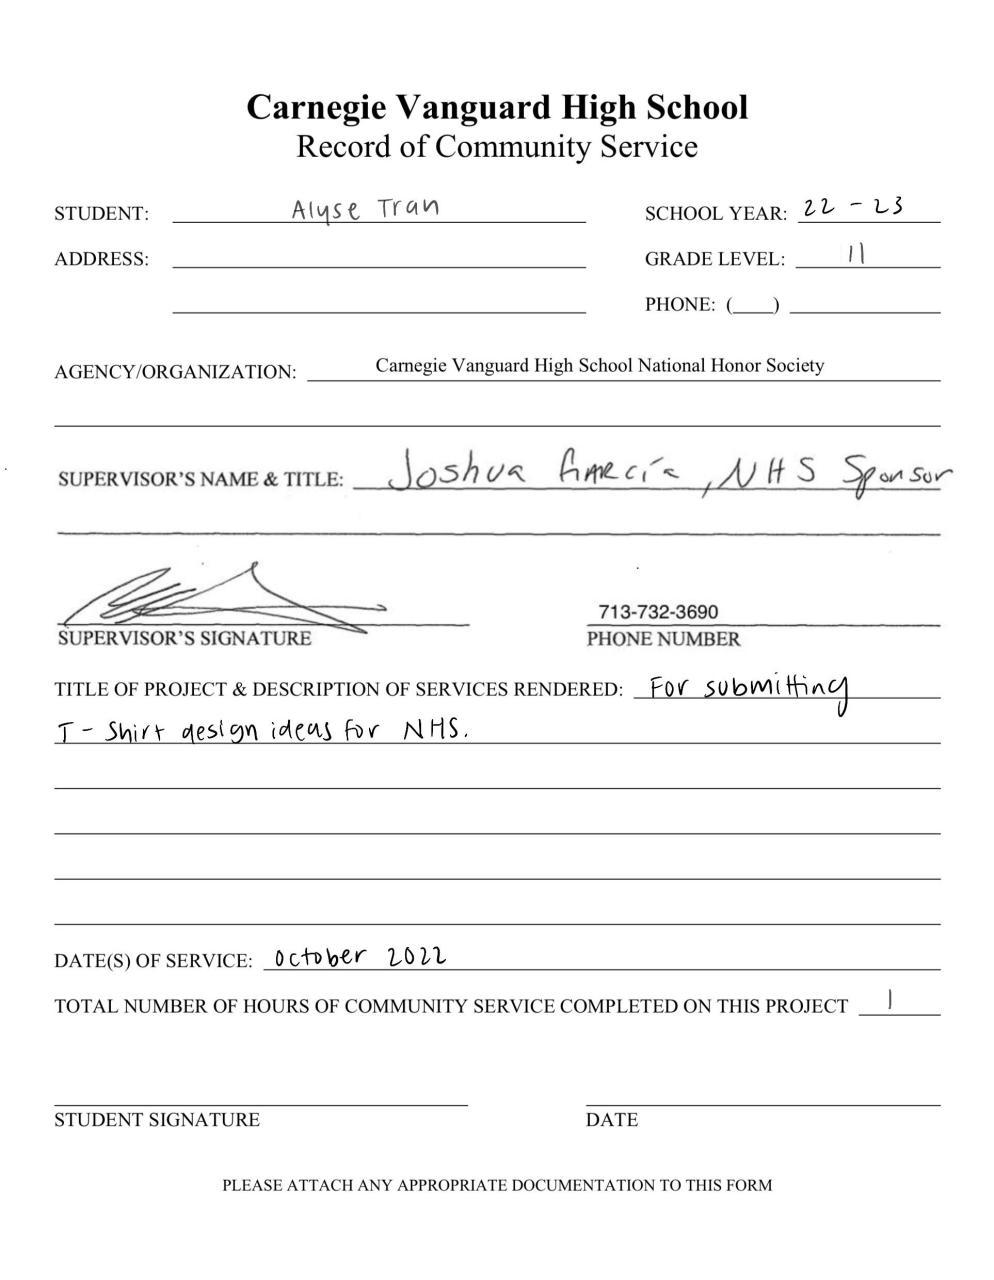 Carnegie Vanguard High School
Record of Community Service
STUDENT: Alyse Tran SCHOOL YEAR: 22 - 23
ADDRESS: GRADE LEVEL: 11
PHONE: (___)
AGENCY/ORGANIZATION: Carnegie Vanguard High School National Honor Society
SUPERVISOR'S NAME & TITLE: Joshua García, NHS Sponsor
713-732-3690
SUPERVISOR'S SIGNATURE PHONE NUMBER
TITLE OF PROJECT & DESCRIPTION OF SERVICES RENDERED: For submitting
T - Shirt design ideas for NHS.
DATE(S) OF SERVICE: October 2022
TOTAL NUMBER OF HOURS OF COMMUNITY SERVICE COMPLETED ON THIS PROJECT 1
STUDENT SIGNATURE DATE
PLEASE ATTACH ANY APPROPRIATE DOCUMENTATION TO THIS FORM